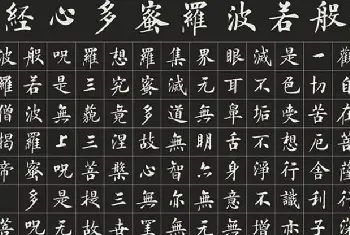 般若波羅蜜多心經
觀自在菩薩行深
一切苦厄舍利子
是色受想行識亦
滅不垢不淨不增
眼耳鼻舌身意色
界无無明亦無無
集滅道無智亦无
羅蜜多故心無罣
想究竟涅槃三世
羅三藐三菩提故
呪是無上呪是无
般若波羅蜜多呪
波羅僧揭帝菩